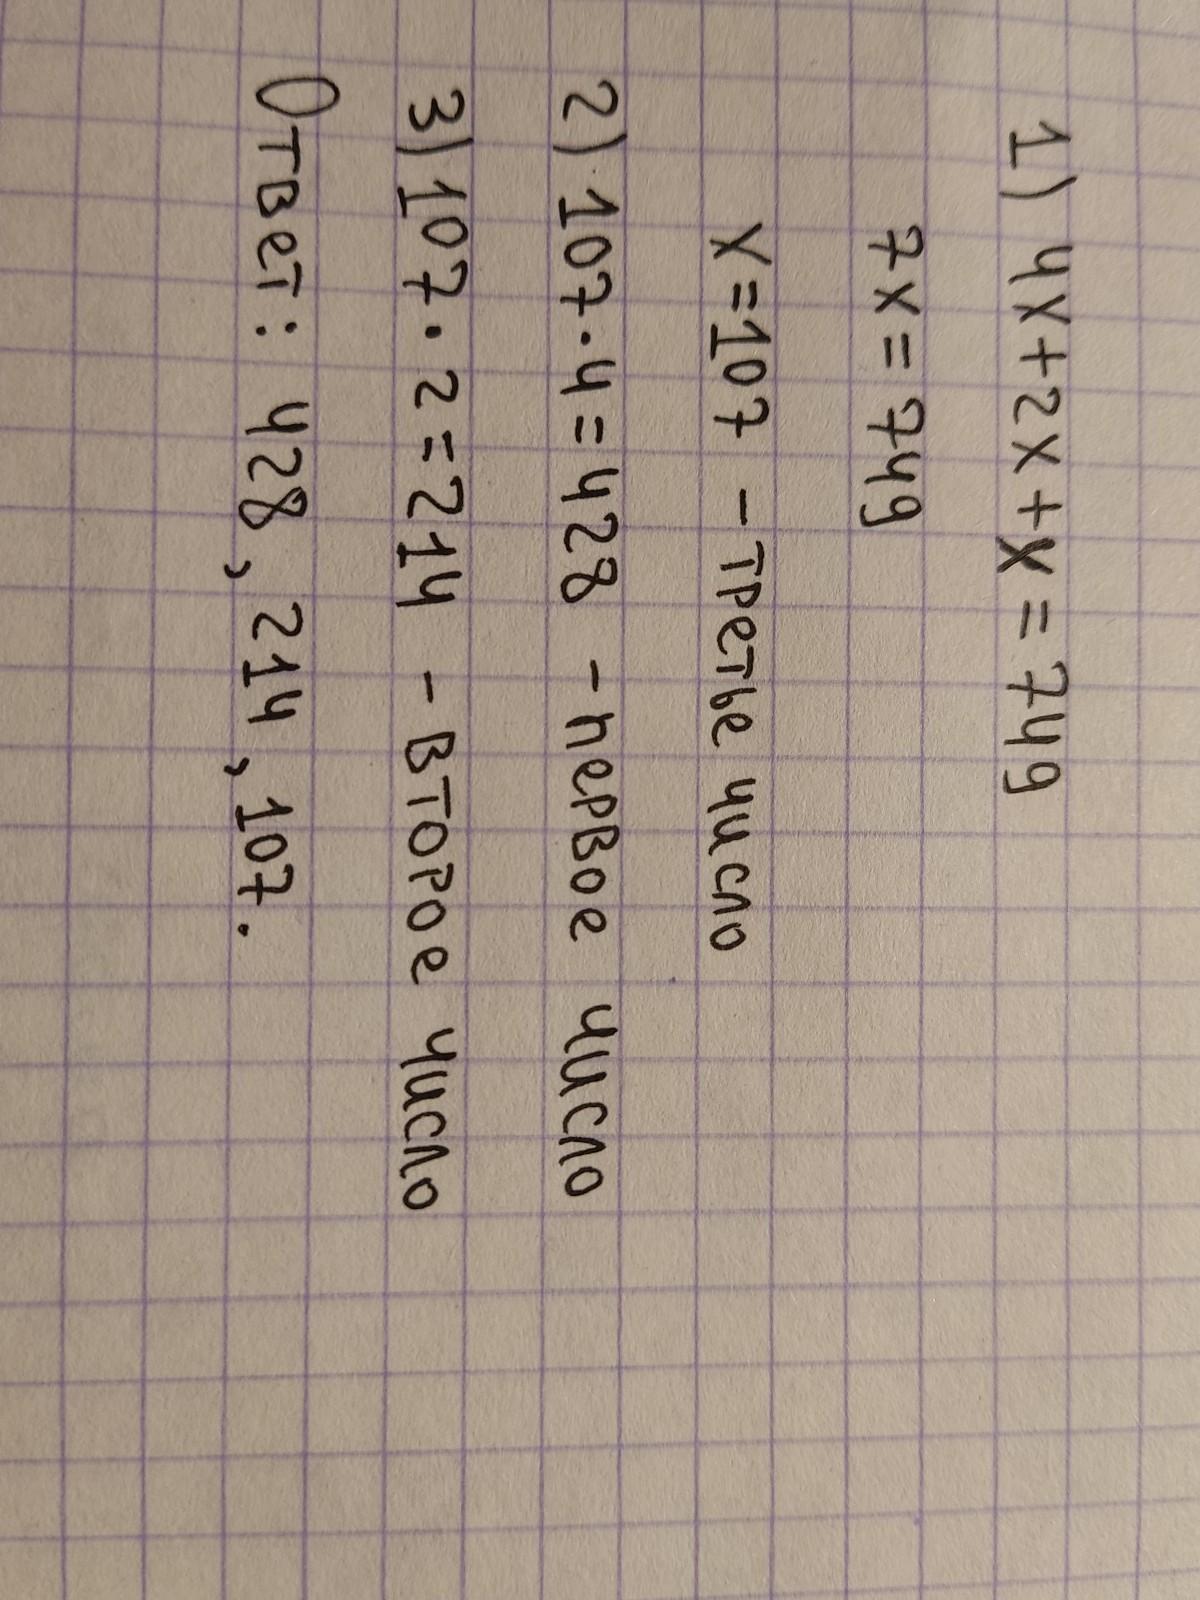 1) 4x+2x+x=749
7x=749
x=107 -третье число
2) 107·4=428 -первое число
3) 107·2=214 -второе число
Ответ: 428, 214, 107.